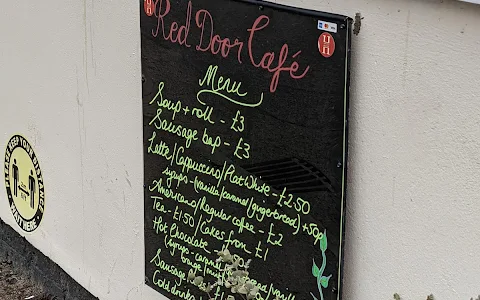 Red Door Café
Menu
Soup + roll - £3
Sausage bap - £3
Latte/Cappuccino/Flat White - £2.50
syrups - vanilla/caramel/gingerbread) +50p
Americano/Regular coffee - £2
Tea - £1.50/Cakes from £1
Hot Chocolate
(syrups - caramel
Sausage
Cold drinks
PLEASE KEEP YOUR DISTANCE
WAIT HERE